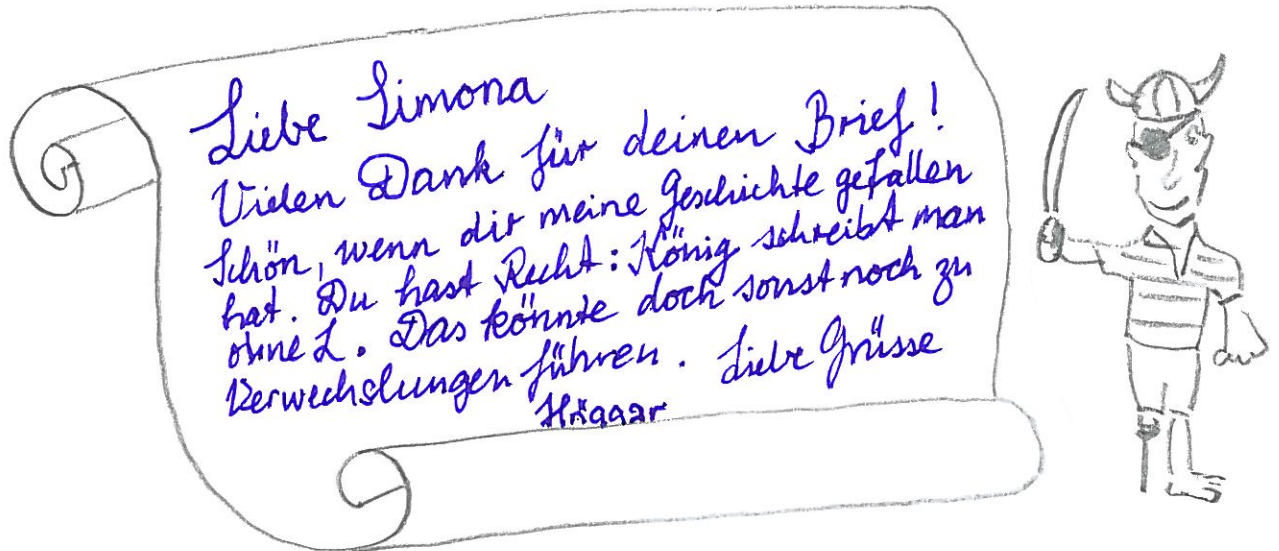 Liebe Simona
Vielen Dank für deinen Brief!
Schön, wenn dir meine Geschichte gefallen
hat. Du hast Recht: König schreibt man
ohne L. Das könnte doch sonst noch zu
Verwechslungen führen. Liebe Grüsse
Häggar